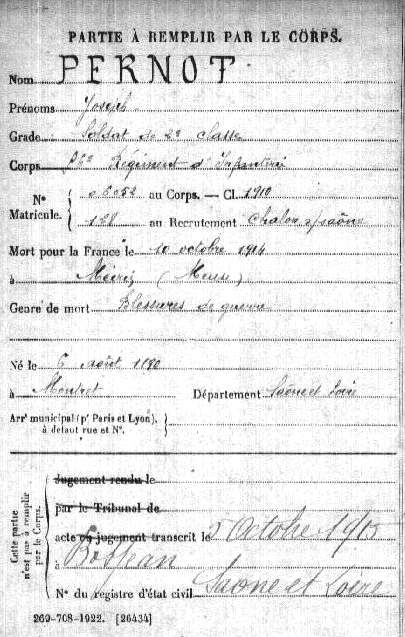 PARTIE À REMPLIR PAR LE CORPS.
Nom PERNOT
Prénoms Joseph
Grade Soldat de 2e classe
Corps 56e Régiment d'Infanterie
N° Matricule. { 06052 au Corps. — Cl. 1910
128 au Recrutement Chalon s/saône
Mort pour la France le 10 octobre 1914
à (Meuse)
Genre de mort Blessures de guerre
Né le 6 août 1890
à Montret Département Saône et Loire
Arrt municipal (pr Paris et Lyon),
à défaut rue et N°.
Cette partie n'est pas à remplir par le Corps.
Jugement rendu le
par le Tribunal de
acte ou jugement transcrit le 5 Octobre 1915
à Bosjean
N° du registre d'état civil Saône et Loire
269-708-1922. [26434]